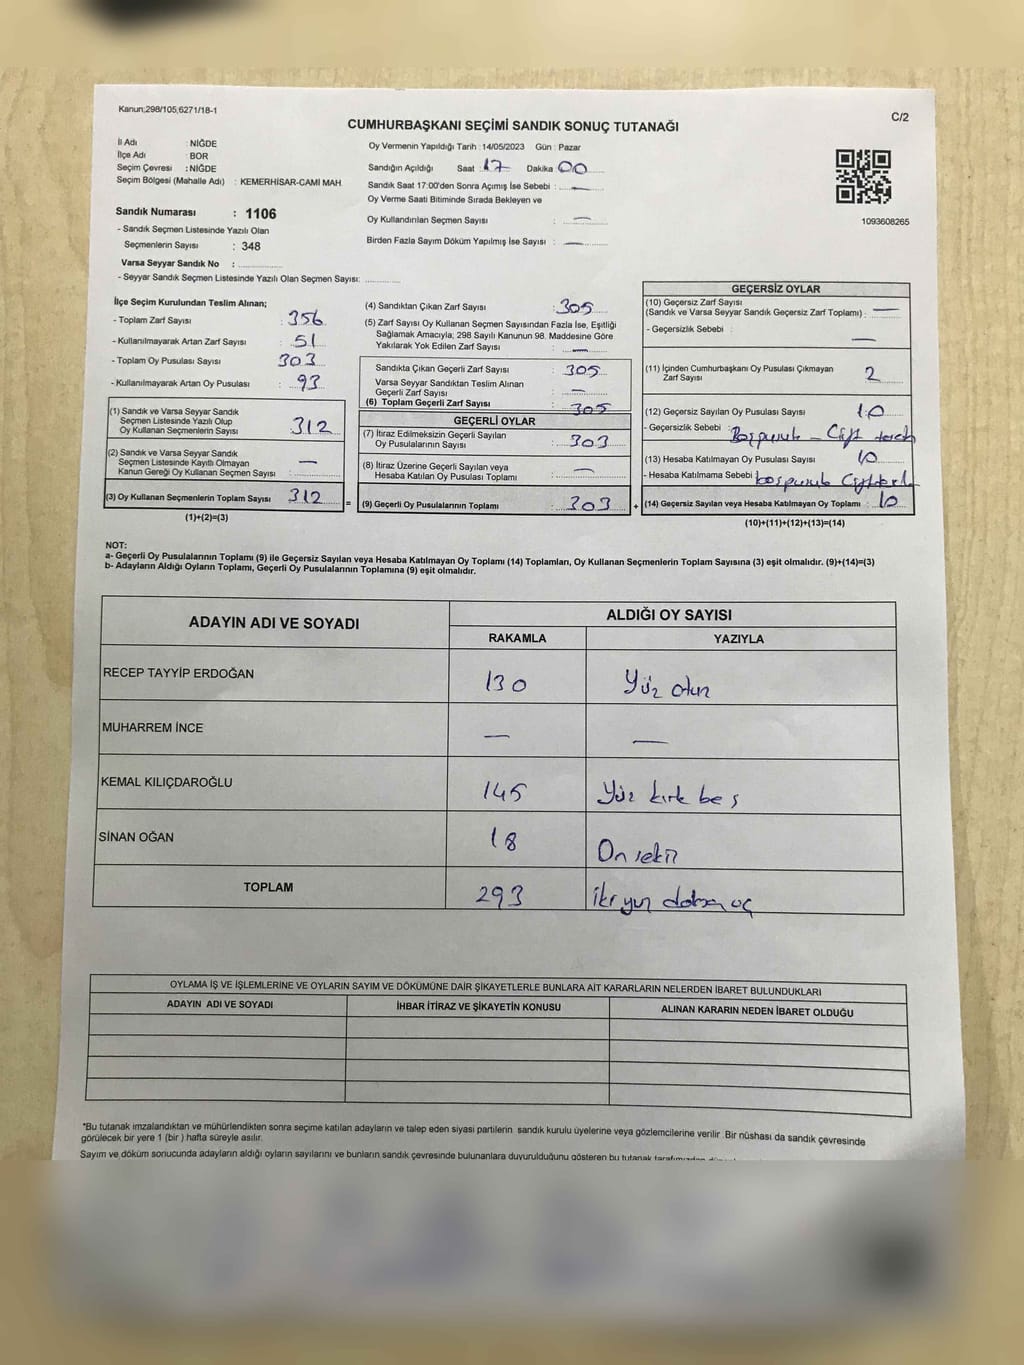 Kanun;298/105,6271/18-1
C/2
CUMHURBAŞKANI SEÇİMİ SANDIK SONUÇ TUTANAĞI
İl Adı : NİĞDE
İlçe Adı : BOR
Seçim Çevresi : NİĞDE
Seçim Bölgesi (Mahalle Adı) : KEMERHİSAR-CAMİ MAH.
Oy Vermenin Yapıldığı Tarih : 14/05/2023 Gün : Pazar
Sandığın Açıldığı Saat : 17 Dakika 00
Sandık Saat 17:00'den Sonra Açımış İse Sebebi : —
Oy Verme Saati Bitiminde Sırada Bekleyen ve
Oy Kullandırılan Seçmen Sayısı : —
Birden Fazla Sayım Döküm Yapılmış İse Sayısı : —
1093608265
Sandık Numarası : 1106
- Sandık Seçmen Listesinde Yazılı Olan
Seçmenlerin Sayısı : 348
Varsa Seyyar Sandık No :
- Seyyar Sandık Seçmen Listesinde Yazılı Olan Seçmen Sayısı:
İlçe Seçim Kurulundan Teslim Alınan;
- Toplam Zarf Sayısı : 356
- Kullanılmayarak Artan Zarf Sayısı : 51
- Toplam Oy Pusulası Sayısı : 303
- Kullanılmayarak Artan Oy Pusulası : 93
(1) Sandık ve Varsa Seyyar Sandık
Seçmen Listesinde Yazılı Olup
Oy Kullanan Seçmenlerin Sayısı : 312
(2) Sandık ve Varsa Seyyar Sandık
Seçmen Listesinde Kayıtlı Olmayan
Kanun Gereği Oy Kullanan Seçmen Sayısı : —
(3) Oy Kullanan Seçmenlerin Toplam Sayısı : 312
(1)+(2)=(3)
(4) Sandıktan Çıkan Zarf Sayısı : 305
(5) Zarf Sayısı Oy Kullanan Seçmen Sayısından Fazla İse, Eşitliği
Sağlamak Amacıyla, 298 Sayılı Kanunun 98. Maddesine Göre
Yakılarak Yok Edilen Zarf Sayısı : —
Sandıkta Çıkan Geçerli Zarf Sayısı : 305
Varsa Seyyar Sandıktan Teslim Alınan
Geçerli Zarf Sayısı : —
(6) Toplam Geçerli Zarf Sayısı : 305
GEÇERLİ OYLAR
(7) İtiraz Edilmeksizin Geçerli Sayılan
Oy Pusulalarının Sayısı : 303
(8) İtiraz Üzerine Geçerli Sayılan veya
Hesaba Katılan Oy Pusulası Toplamı : —
= (9) Geçerli Oy Pusulalarının Toplamı : 303 +
GEÇERSİZ OYLAR
(10) Geçersiz Zarf Sayısı
(Sandık ve Varsa Seyyar Sandık Geçersiz Zarf Toplamı) : —
- Geçersizlik Sebebi : —
(11) İçinden Cumhurbaşkanı Oy Pusulası Çıkmayan
Zarf Sayısı : 2
(12) Geçersiz Sayılan Oy Pusulası Sayısı : 10
- Geçersizlik Sebebi : Boş pusula - Çift tercih
(13) Hesaba Katılmayan Oy Pusulası Sayısı : 10
- Hesaba Katılmama Sebebi :
(14) Geçersiz Sayılan veya Hesaba Katılmayan Oy Toplamı : 10
(10)+(11)+(12)+(13)=(14)
NOT:
a- Geçerli Oy Pusulalarının Toplamı (9) ile Geçersiz Sayılan veya Hesaba Katılmayan Oy Toplamı (14) Toplamları, Oy Kullanan Seçmenlerin Toplam Sayısına (3) eşit olmalıdır. (9)+(14)=(3)
b- Adayların Aldığı Oyların Toplamı, Geçerli Oy Pusulalarının Toplamına (9) eşit olmalıdır.
ADAYIN ADI VE SOYADI ALDIĞI OY SAYISI
RAKAMLA YAZIYLA
RECEP TAYYİP ERDOĞAN 130 Yüz otuz
MUHARREM İNCE — —
KEMAL KILIÇDAROĞLU 145 Yüz kırk beş
SİNAN OĞAN 18 On sekiz
TOPLAM 293 iki yüz doksan üç
OYLAMA İŞ VE İŞLEMLERİNE VE OYLARIN SAYIM VE DÖKÜMÜNE DAİR ŞİKAYETLERLE BUNLARA AİT KARARLARIN NELERDEN İBARET BULUNDUKLARI
ADAYIN ADI VE SOYADI İHBAR İTİRAZ VE ŞİKAYETİN KONUSU ALINAN KARARIN NEDEN İBARET OLDUĞU
*Bu tutanak imzalandıktan ve mühürlendikten sonra seçime katılan adayların ve talep eden siyasi partilerin sandık kurulu üyelerine veya gözlemcilerine verilir .Bir nüshası da sandık çevresinde
görülecek bir yere 1 (bir ) hafta süreyle asılır.
Sayım ve döküm sonucunda adayların aldığı oyların sayılarını ve bunların sandık çevresinde bulunanlara duyurulduğunu gösteren bu tutanak tarafımızdan